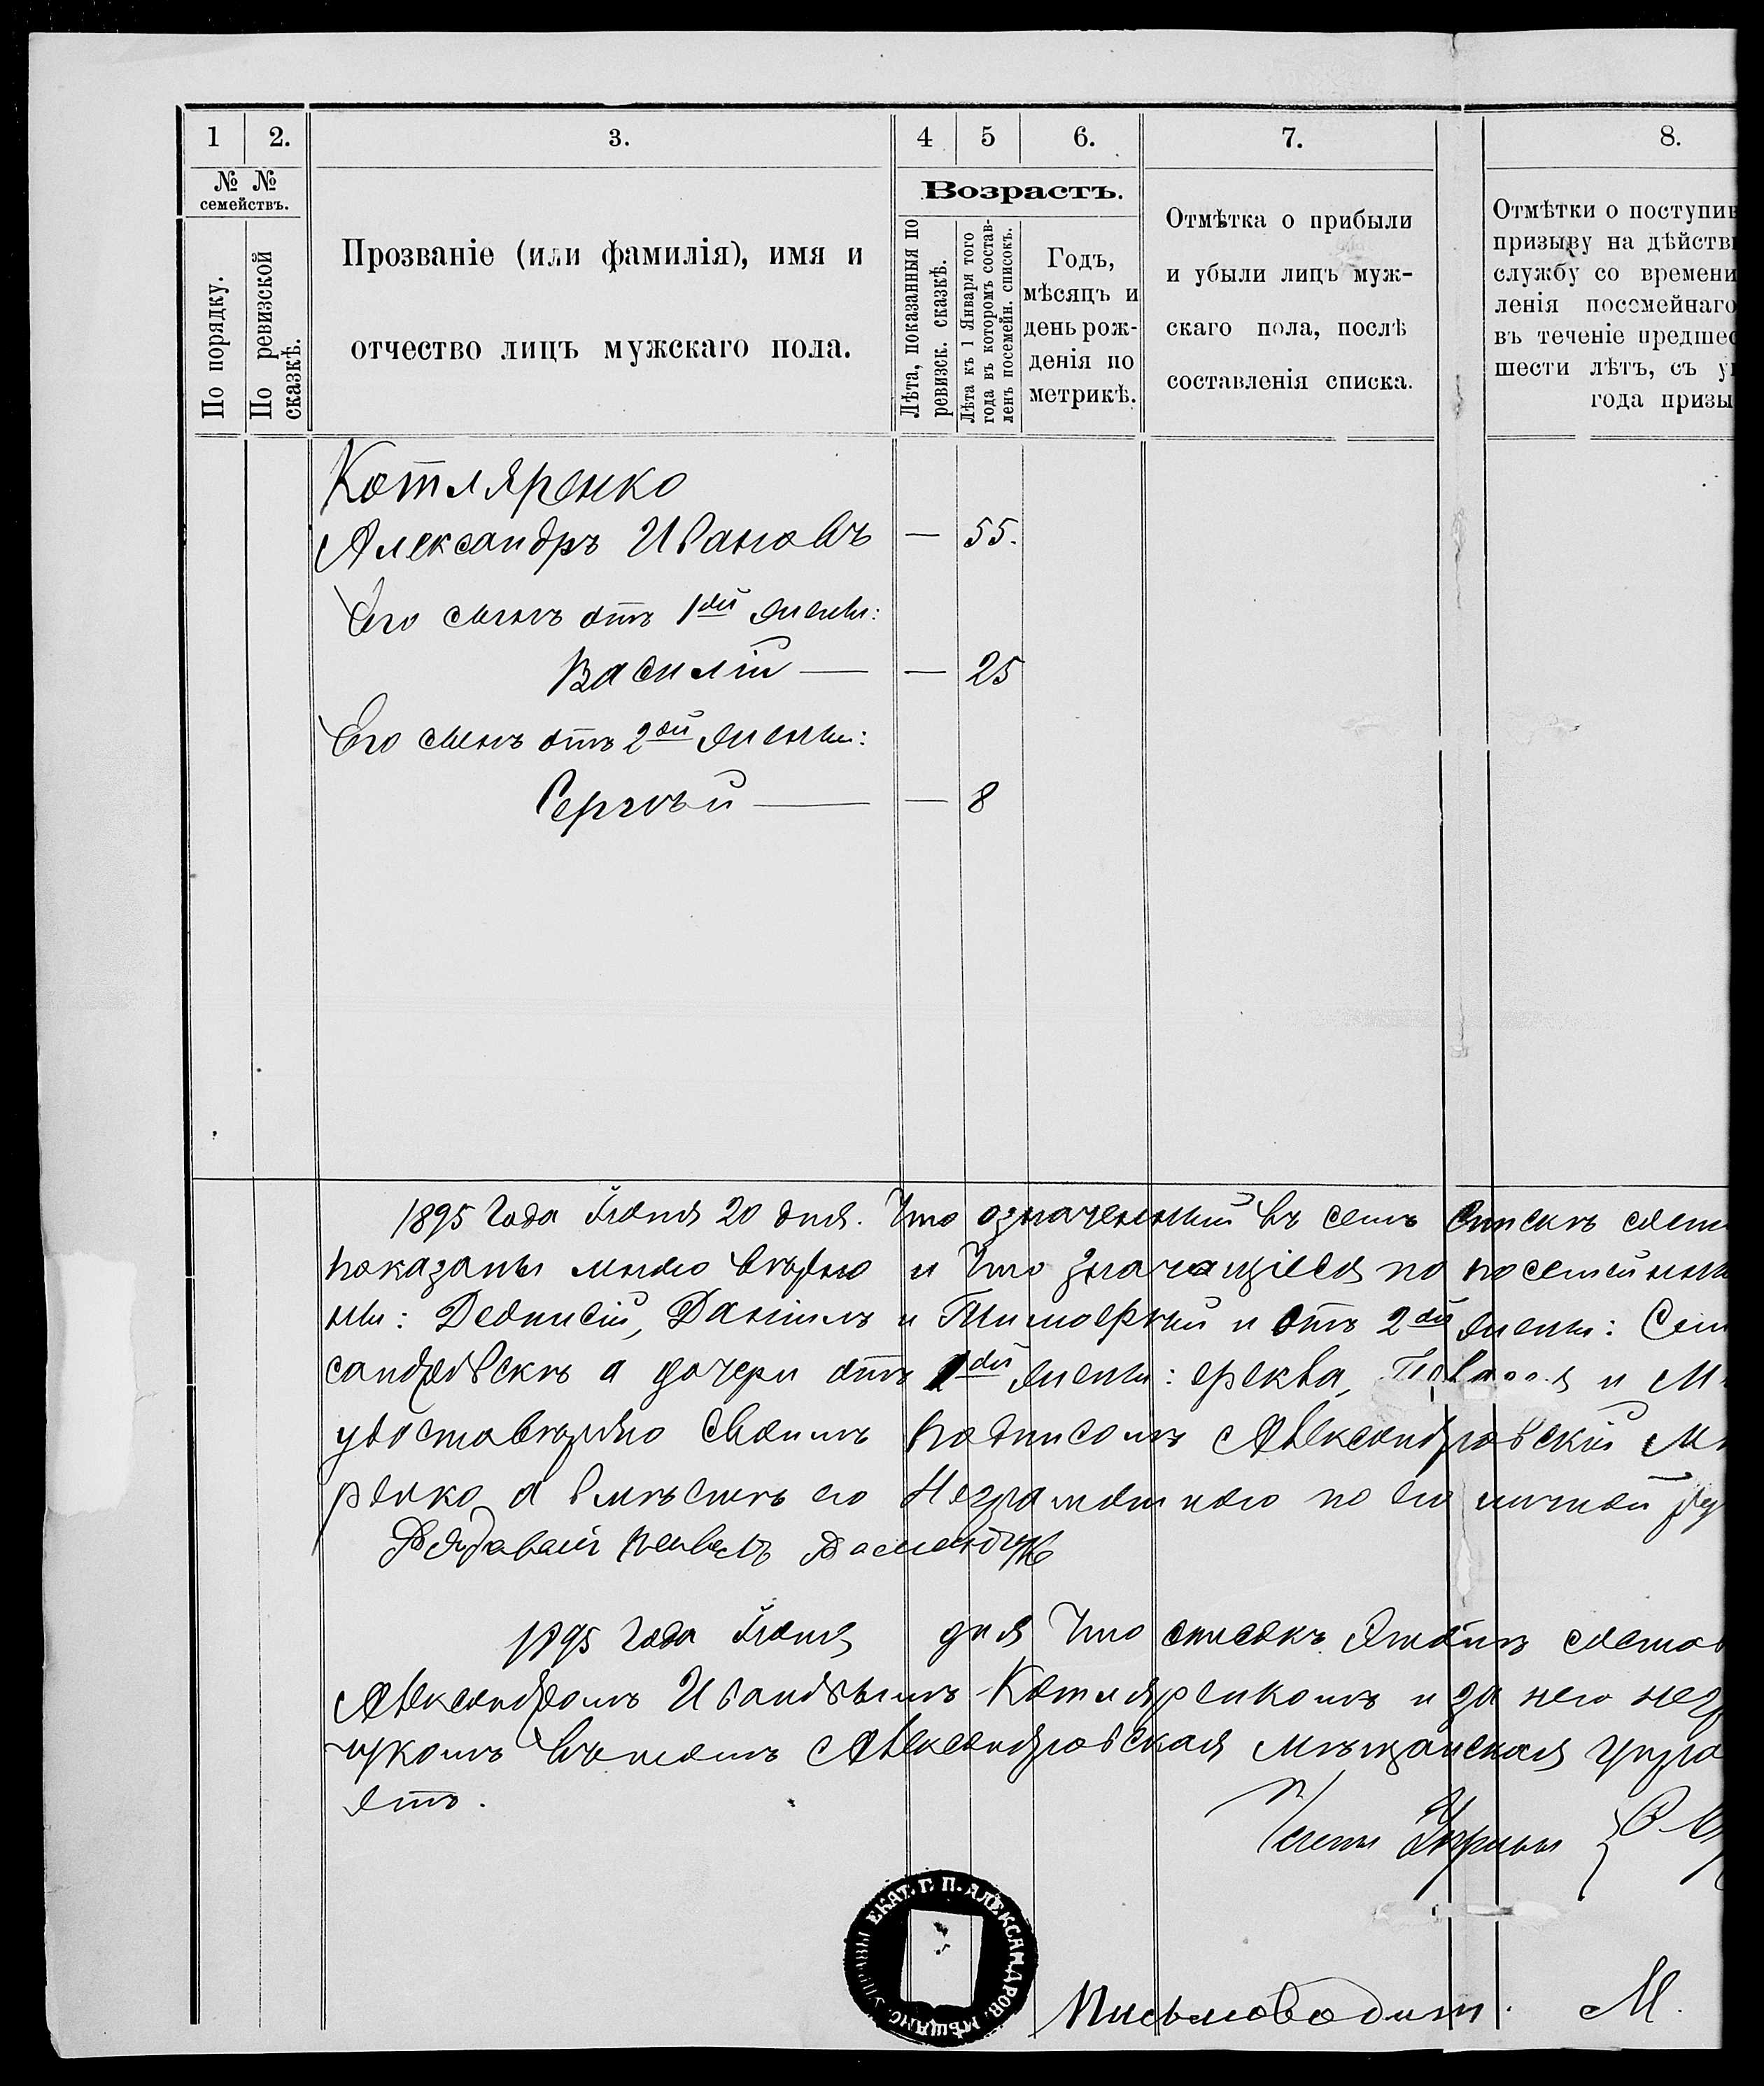 1 2. 3. 4 5 6. 7. 8.
№ № семействъ.
По порядку.
По ревизской сказкѣ.
Прозваніе (или фамилія), имя и
отчество лицъ мужскаго пола.
Возрастъ.
Лѣта, показанныя по
ревизск. сказкѣ.
Лѣта къ 1 Января того
года въ которомъ состав-
ленъ посемейн. списокъ.
Годъ,
мѣсяцъ и
день рож-
денія по
метрикѣ.
Отмѣтка о прибыли
и убыли лицъ муж-
скаго пола, послѣ
составленія списка.
Отмѣтки о поступив
призыву на дѣйстви
службу со времени
ленія посемейнаго
въ теченіе предшес
шести лѣтъ, съ ук
года призы
Котляренко
Александръ Ивановъ — 55.
Его сынъ отъ 1ой жены:
Василій — — 25
Его сынъ отъ 2ой жены:
Сергѣй — — 8
1895 года Іюня 20 дня. Что означенный въ семъ спискѣ
показаны мною вѣрно и что значащіеся по посемейн
ны: Деонисій, Даніилъ и Тимофѣй и отъ 2ой жены: Сем
сандровскѣ а дочери отъ 1ой жены: и М
удостовѣряю своимъ подписомъ Александровскій М
ренко а вмѣсто его неграмотнаго по его личной
1895 года Іюня дня что списокъ этотъ состав
Александромъ Ивановымъ Котляренкомъ и за него негр
щукомъ въ томъ Александровская мѣщанская упра
етъ.
Члены Управы
ЕКАТ. Г. П. АЛЕКСАНДРОВ. МѢЩАНС. УПРАВЫ
Письмоводит. М.